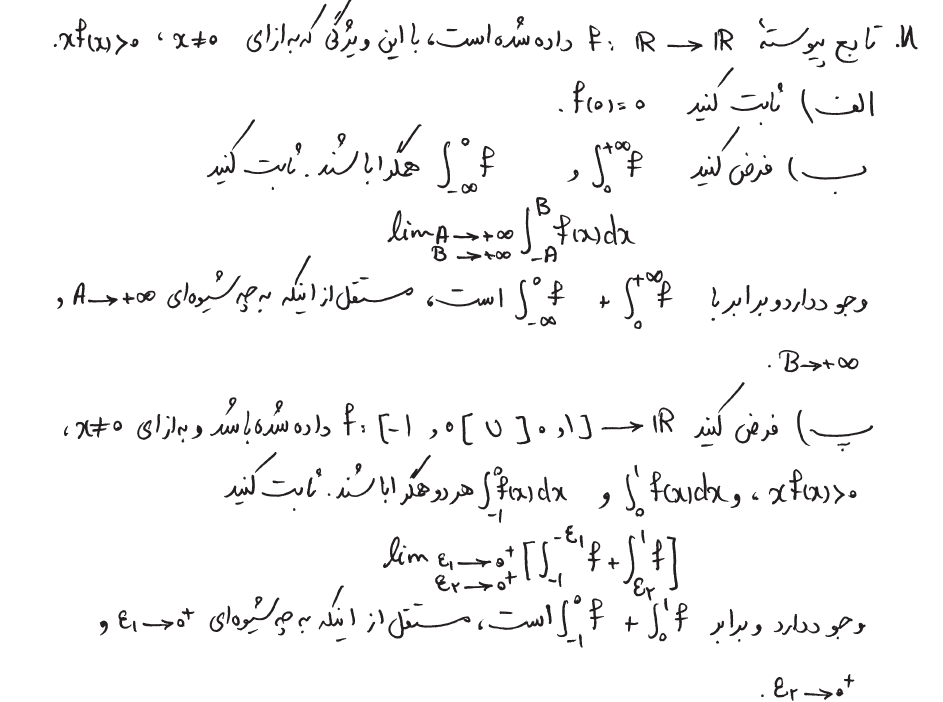 ۸. تابع پیوستهٔ f: ℝ → ℝ داده شده است، با این ویژگی که به ازای x≠0 ، xf(x)>0.
الف) ثابت کنید f(0)=0 .
ب) فرض کنید ∫_0^{+∞} f و ∫_{-∞}^0 f همگرا باشند. ثابت کنید
lim_{A→+∞, B→+∞} ∫_{-A}^B f(x)dx
وجود دارد و برابر با ∫_0^{+∞} f + ∫_{-∞}^0 f است، مستقل از اینکه به چه شیوه‌ای A→+∞ و
B→+∞ .
پ) فرض کنید f: [-1 , 0[ ∪ ]0 , 1] → ℝ داده شده باشد و به ازای x≠0 ،
xf(x)>0 ، و ∫_0^1 f(x)dx و ∫_{-1}^0 f(x)dx هر دو همگرا باشند. ثابت کنید
lim_{ε₁→0⁺, ε₂→0⁺} [∫_{-1}^{-ε₁} f + ∫_{ε₂}^1 f]
وجود دارد و برابر ∫_0^1 f + ∫_{-1}^0 f است، مستقل از اینکه به چه شیوه‌ای ε₁→0⁺ و
ε₂→0⁺ .